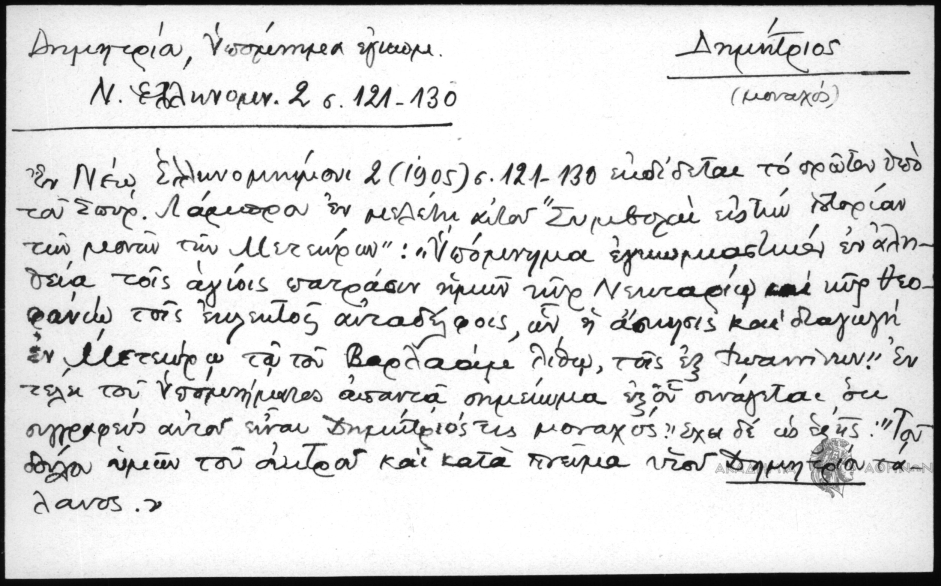 Δημητρίου, Ὑπόμνημα ἐγκωμ.
Δημήτριος
Ν. Ἑλληνομν. 2 σ. 121-130
(μοναχός)
Ἐν Νέῳ Ἑλληνομνήμονι 2 (1905) σ. 121-130 ἐκδίδεται τὸ πρῶτον ὑπὸ
τοῦ Σπυρ. Λάμπρου ἐν μελέτῃ "Συμβολαὶ εἰς τὴν ἱστορίαν
τῶν μονῶν τῶν Μετεώρων": "Ὑπόμνημα ἐγκωμιαστικὸν ἐν ἀλη-
θείᾳ τοῖς ἁγίοις πατράσιν ἡμῶν κῦρ Νεκταρίῳ καὶ κῦρ Θεο-
φάνῳ τοῖς ἐκλεκτοῖς αὐταδέλφοις, ὧν ἡ ἄσκησις καὶ διαγωγὴ
ἐν Μετεώρῳ τῷ τοῦ Βαρλαὰμ λίθῳ, τοῖς ἐξ Ἰωαννίνων". Ἐν
τέλει τοῦ Ὑπομνήματος ἀπαντᾷ σημείωμα ἐξ οὗ συνάγεται ὅτι
συγγραφεὺς αὐτοῦ εἶναι Δημήτριός τις μοναχός. Ἔχει δὲ ὡς ἑξῆς: "Τοῦ
δούλου ὑμῶν τοῦ οἰκτροῦ καὶ κατὰ πνεῦμα υἱοῦ Δημητρίου τά-
λανος.»
ΑΚΑΔΗΜΙΑ ΑΘΗΝΩΝ